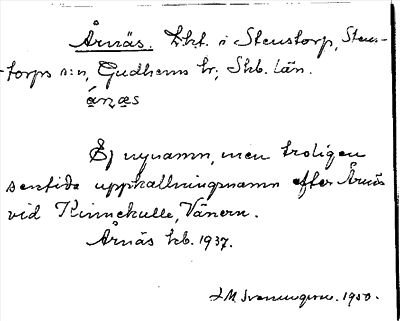 Årnäs. Lht. i Stenstorp, Stens-
torps s:n, Gudhems hd; Skb. län.
ánæs
Ej nynamn, men troligen
sentida uppkallningsnamn efter Årnäs
vid Kinnekulle, Vänern.
Årnäs kb. 1937.
I M Svanungren. 1950.